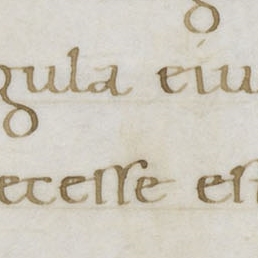 gula eiu
ecesse est